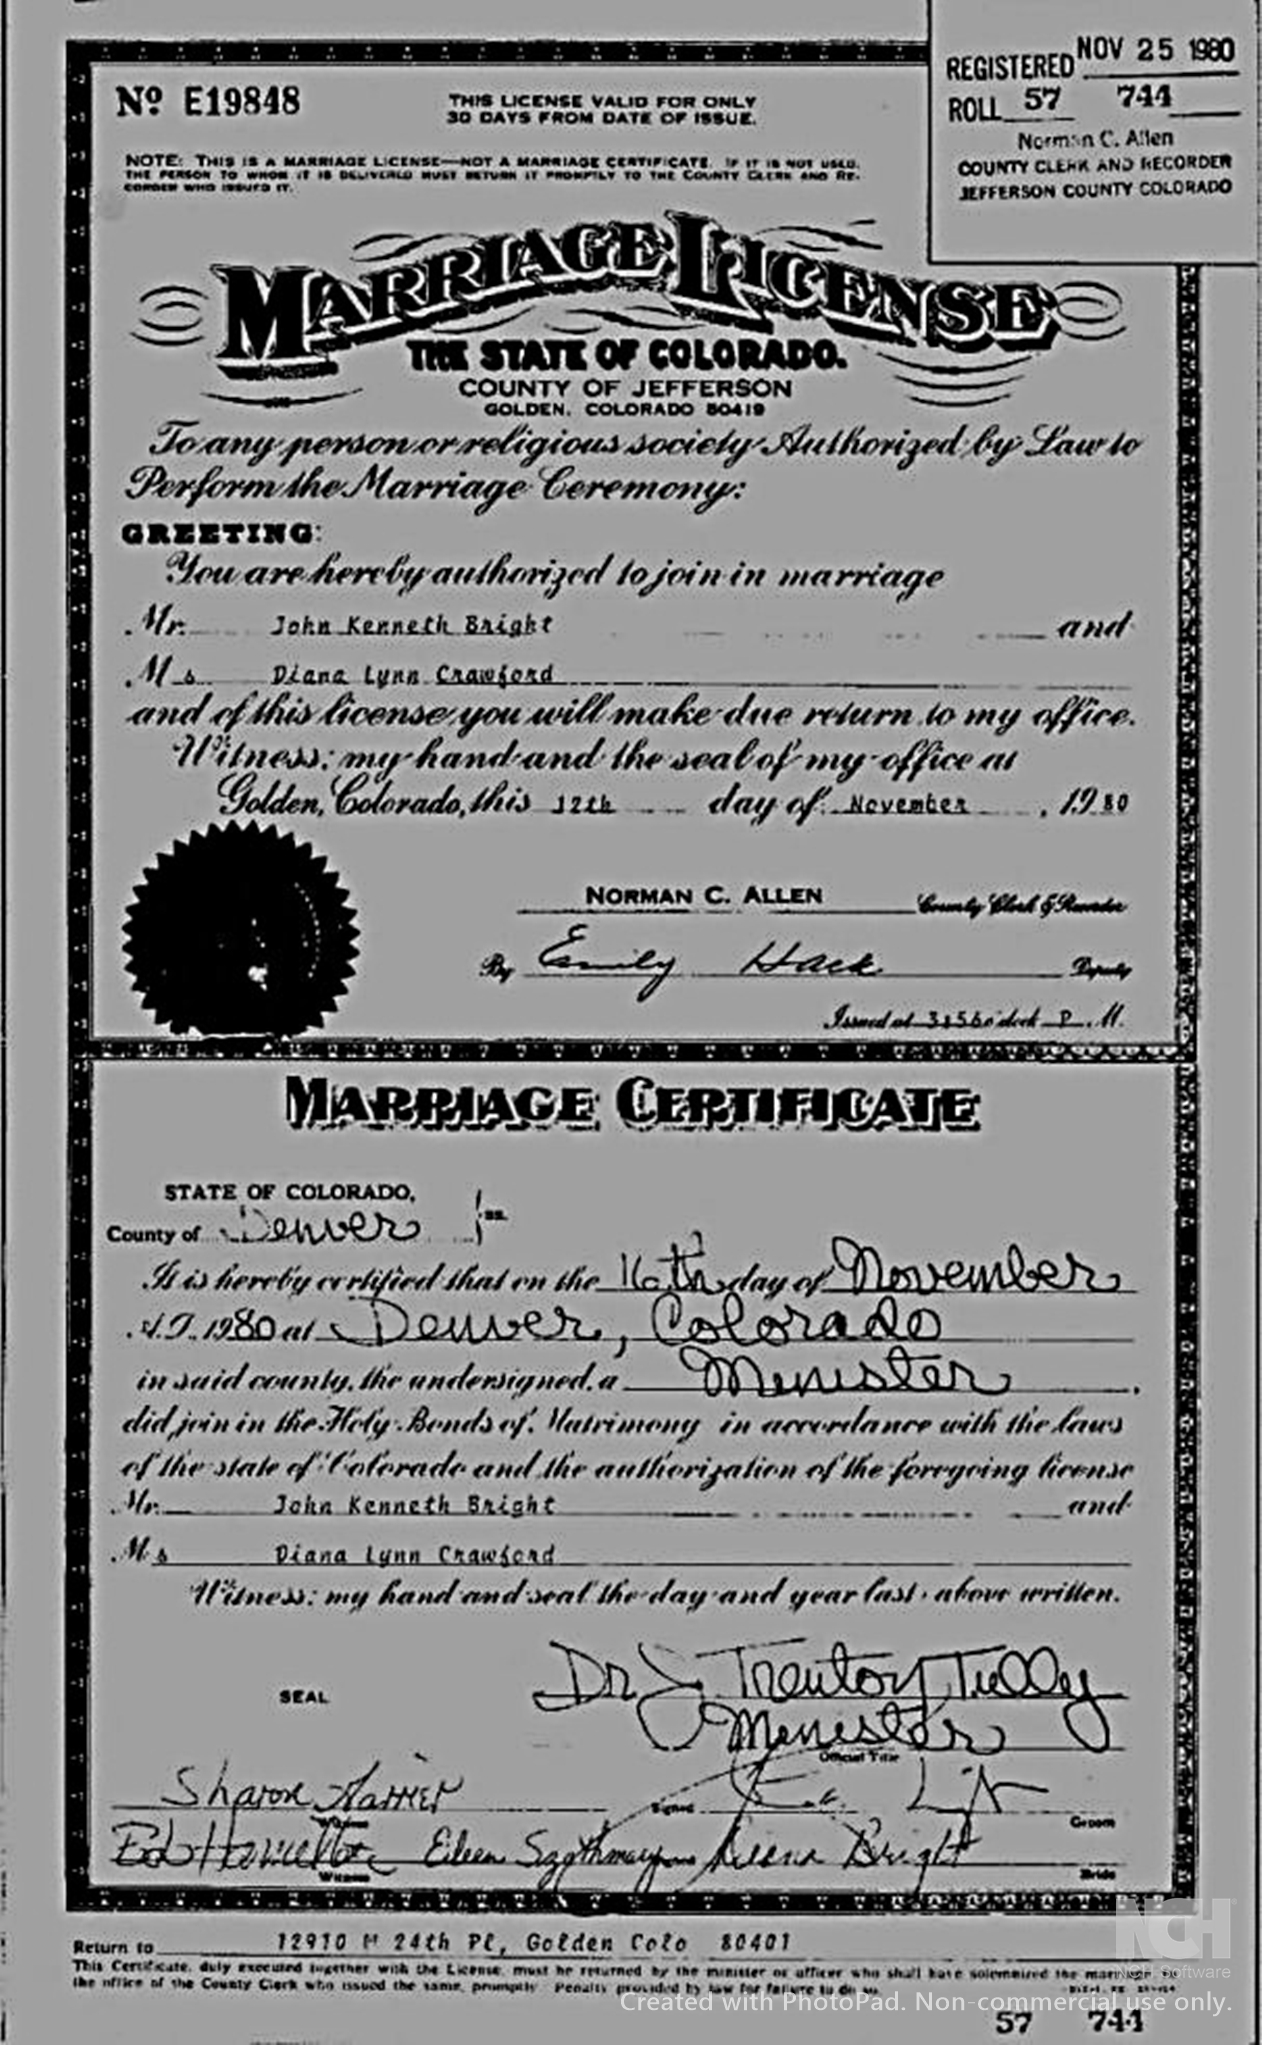 REGISTERED NOV 25 1980
ROLL 57 744
Norman C. Allen
COUNTY CLERK AND RECORDER
JEFFERSON COUNTY COLORADO
Nº E19848
THIS LICENSE VALID FOR ONLY
30 DAYS FROM DATE OF ISSUE.
NOTE: THIS IS A MARRIAGE LICENSE—NOT A MARRIAGE CERTIFICATE. IF IT IS NOT USED,
THE PERSON TO WHOM IT IS DELIVERED MUST RETURN IT PROMPTLY TO THE COUNTY CLERK AND RE-
CORDER WHO ISSUED IT.
MARRIAGE LICENSE
THE STATE OF COLORADO.
COUNTY OF JEFFERSON
GOLDEN, COLORADO 80419
To any person or religious society Authorized by Law to
Perform the Marriage Ceremony:
GREETING:
You are hereby authorized to join in marriage
Mr. John Kenneth Bright and
Ms Diana Lynn Crawford
and of this license you will make due return to my office.
Witness: my hand and the seal of my office at
Golden, Colorado, this 12th day of November, 1980
NORMAN C. ALLEN County Clerk & Recorder
By Emily Hack Deputy
Issued at 3:56 o'clock P.M.
MARRIAGE CERTIFICATE
STATE OF COLORADO,
County of Denver ss.
It is hereby certified that on the 16th day of November
A.D. 1980 at Denver, Colorado
in said county, the undersigned, a Menister,
did join in the Holy Bonds of Matrimony in accordance with the laws
of the state of Colorado and the authorization of the foregoing license
Mr. John Kenneth Bright and
Ms Diana Lynn Crawford
Witness: my hand and seal the day and year last above written.
Dr J Trenton Tully
SEAL
Menister
Official Title
Sharon
Witness Signed Groom
Eileen Bright
Witness Bride
NCH
NCH Software
Return to 12910 W 24th Pl, Golden Colo 80401
This Certificate, duly executed together with the License, must be returned by the minister or officer who shall have solemnized the marriage to
the office of the County Clerk who issued the same, promptly. Penalty provided by law for failure to do so.
Created with PhotoPad. Non-commercial use only.
57 744